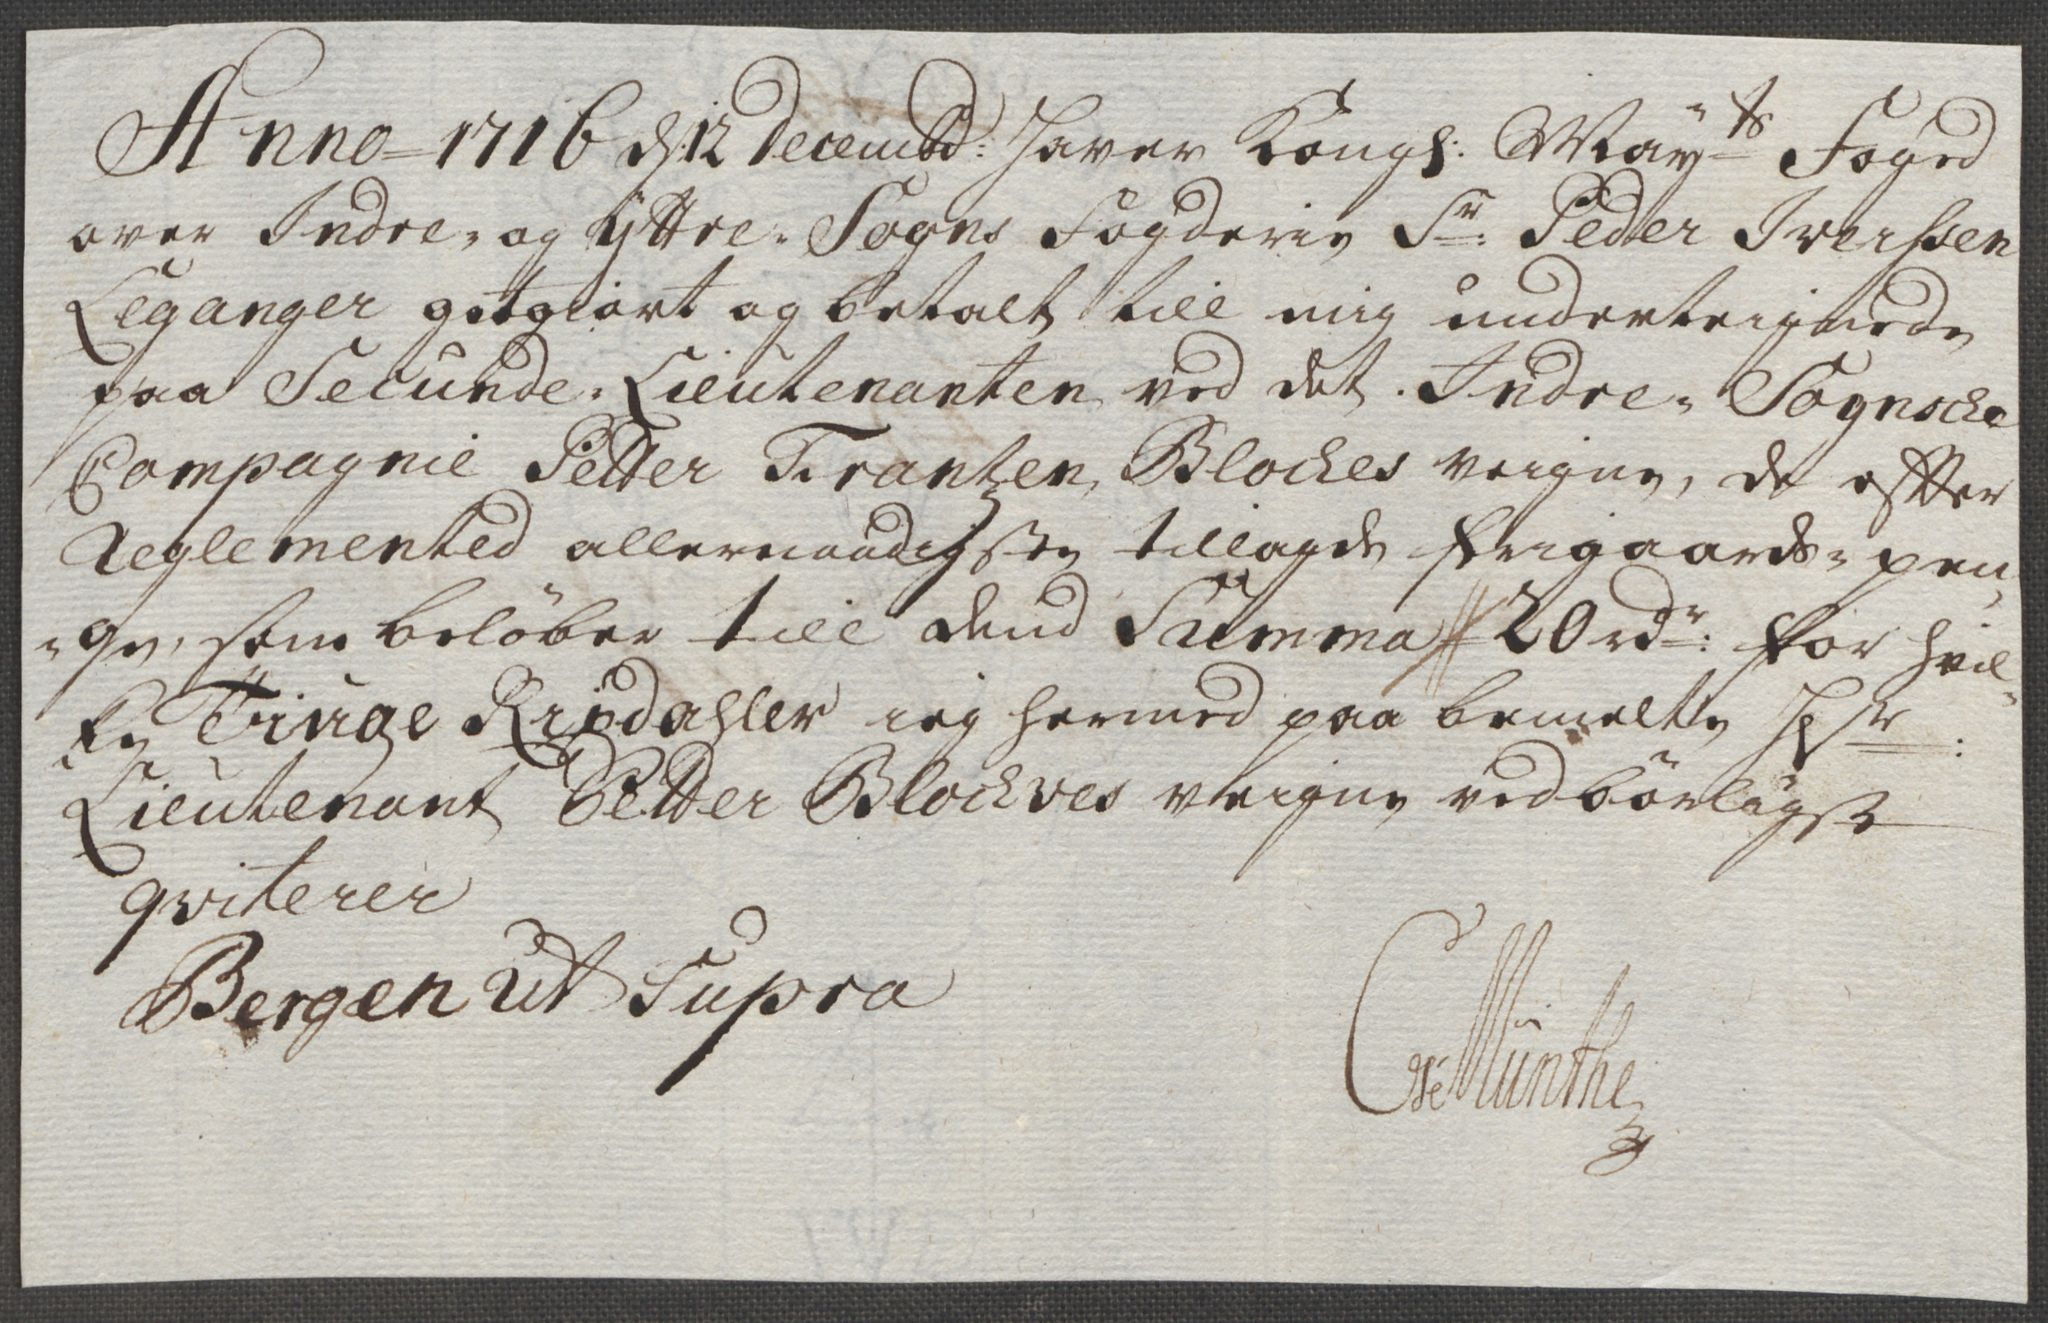 Anno 1716 d: 12 Decembd: Haver Kongl: Maÿ:ts Foged
over Indre- og Ÿttre- Sogns Fogderie Sr: Peder Iverssen
Leganger gotgiort og betalt till mig underteignede
paa Secunde-Lieutenanten ved det Indre- Sognsche
Compagnie Petter Frantzen Bloches veigne, de effter
Reglemented allernaadigste tillagde frigaards-pen-
-ge, som beløber till dend Summa 20 rdr: for hvil-
ke Tiuge Rixdahler ieg hermed paa bemelte Hr:
Lieutenant Petter Blochves veigne vedbørligst
qviterer
Bergen Ut Supra
C de Münthe